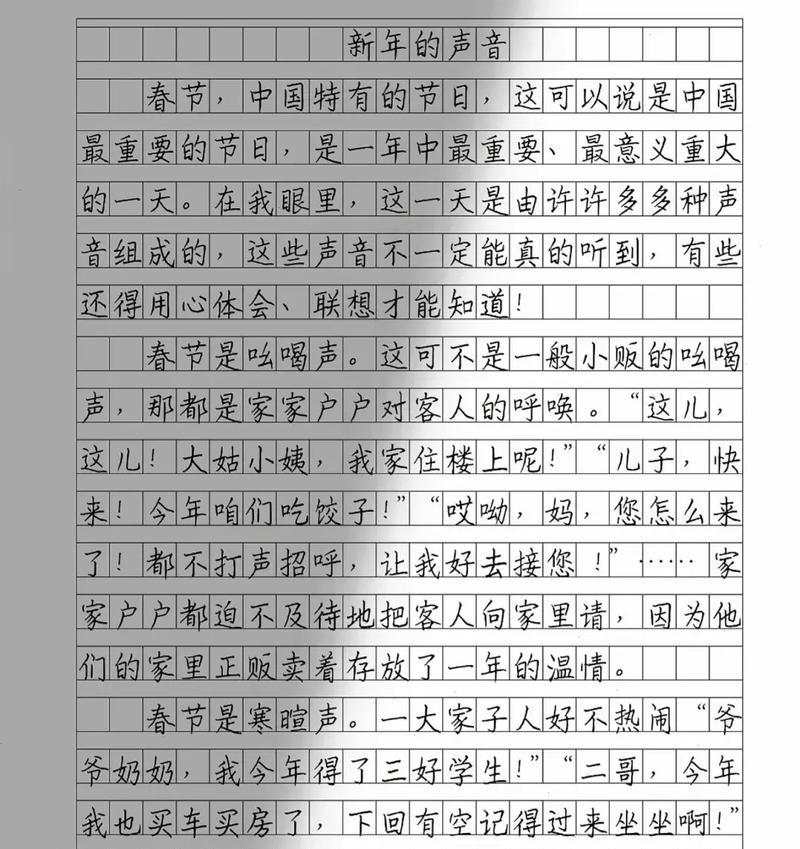 新年的声音
春节，中国特有的节日，这可以说是中国
最重要的节日，是一年中最重要、最意义重大
的一天。在我眼里，这一天是由许许多多种声
音组成的，这些声音不一定能真的听到，有些
还得用心体会、联想才能知道！
春节是吆喝声。这可不是一般小贩的吆喝
声，那都是家家户户对客人的呼唤。“这儿，
这儿！大姑小姨，我家住楼上呢！”“儿子，快
来！今年咱们吃饺子！”“哎呦，妈，您怎么来
了！都不打声招呼，让我好去接您！”……家
家户户都迫不及待地把客人向家里请，因为他
们的家里正贩卖着存放了一年的温情。
春节是寒暄声。一大家子人好不热闹“爷
爷奶奶，我今年得了三好学生！”“二哥，今年
我也买车买房了，下回有空记得过来坐坐啊！”